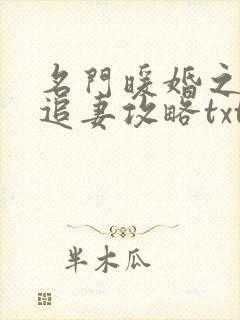 名門暖婚之
追妻攻略txt
半木瓜